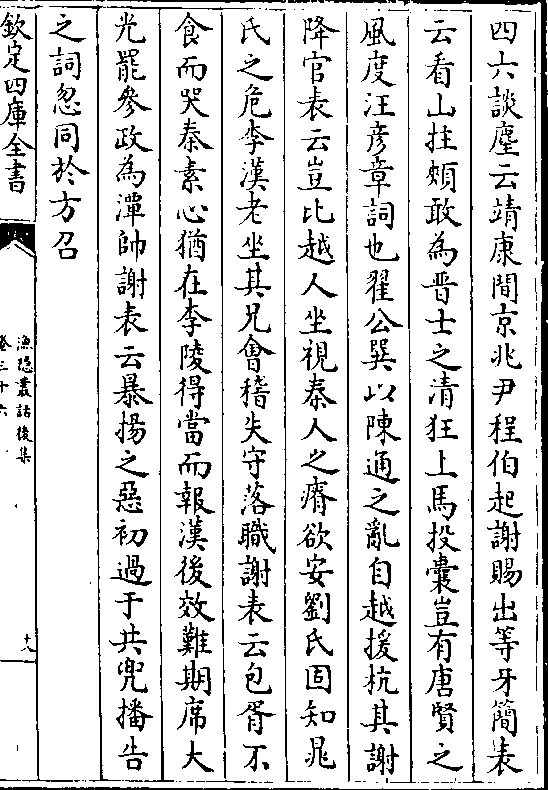 四六談麈云靖康間京兆尹程伯起謝賜出等牙簡表
云看山拄頰敢為晉士之清狂上馬投囊豈有唐賢之
風度汪彥章詞也翟公巽以陳通之亂自越援杭其謝
降官表云豈比越人坐視秦人之瘠欲安劉氏固知鼂
氏之危李漢老坐其兄會稽失守落職謝表云包胥不
食而哭秦素心猶在李陵得當而報漢後效難期席大
光罷參政為潭帥謝表云暴揚之惡初過于共兜播告
之詞忽同於方召
欽定四庫全書
漁隱叢話後集
卷三十六
十八